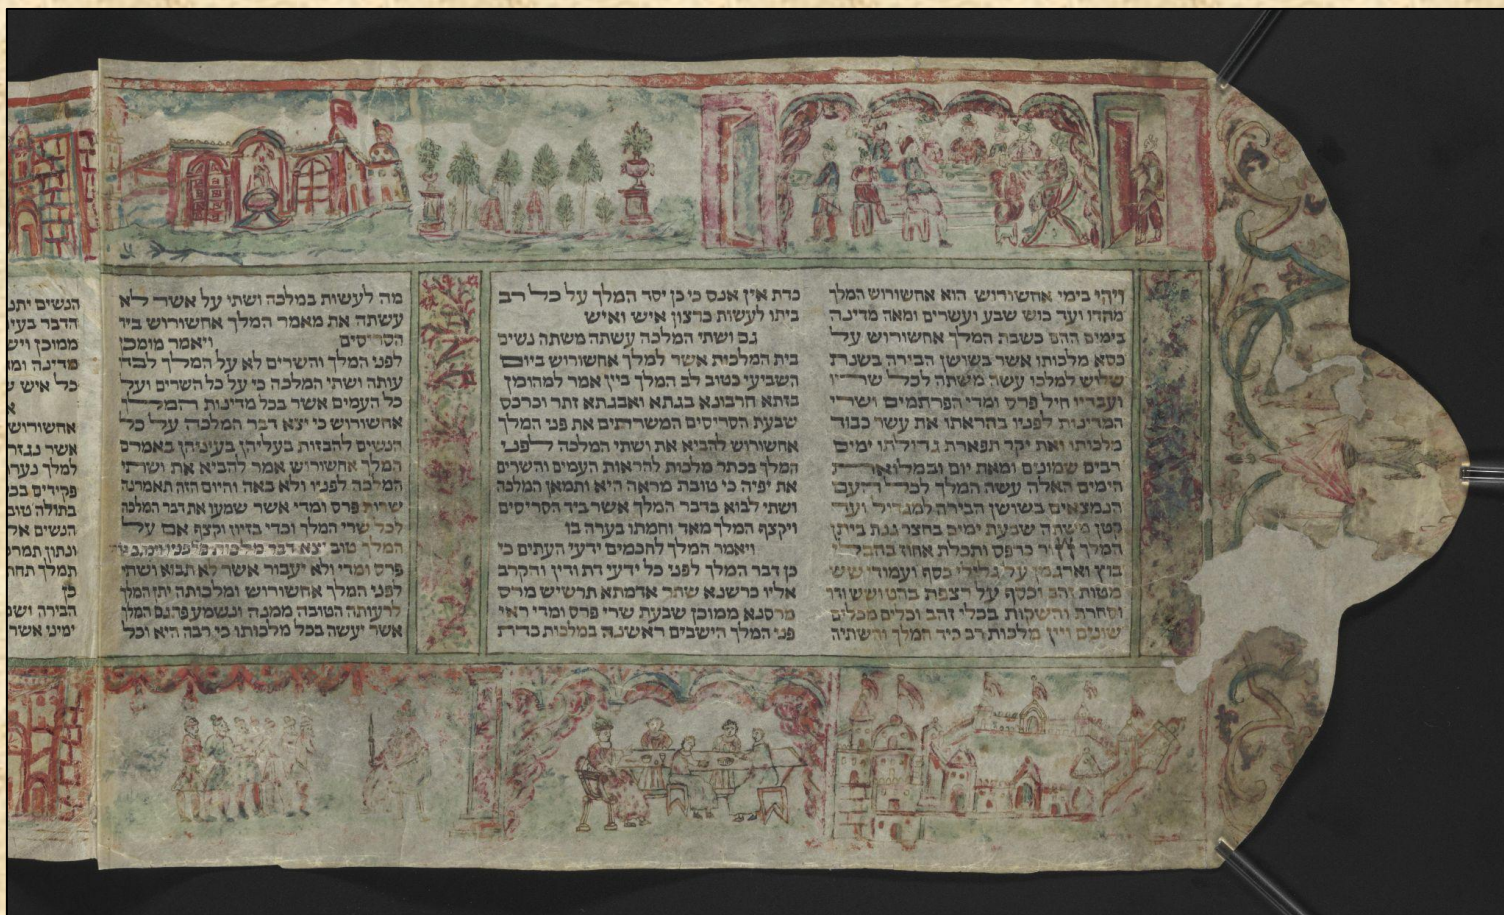 ויהי בימי אחשורוש הוא אחשורוש המלך
מהדו ועד כוש שבע ועשרים ומאה מדינה
בימים ההם כשבת המלך אחשורוש על
כסא מלכותו אשר בשושן הבירה בשנת
שלוש למלכו עשה משתה לכל שריו
ועבדיו חיל פרס ומדי הפרתמים ושרי
המדינות לפניו בהראתו את עשר כבוד
מלכותו ואת יקר תפארת גדולתו ימים
רבים שמונים ומאת יום ובמלואת
הימים האלה עשה המלך לכל העם
הנמצאים בשושן הבירה למגדול ועד
קטן משתה שבעת ימים בחצר גנת ביתן
המלך חור כרפס ותכלת אחוז בחבלי
בוץ וארגמן על גלילי כסף ועמודי שש
מטות זהב וכסף על רצפת בהט ושש ודר
וסחרת והשקות בכלי זהב וכלים מכלים
שונים ויין מלכות רב כיד המלך והשתיה
כדת אין אנס כי כן יסד המלך על כל רב
ביתו לעשות כרצון איש ואיש
גם ושתי המלכה עשתה משתה נשים
בית המלכות אשר למלך אחשורוש ביום
השביעי כטוב לב המלך ביין אמר למהומן
בזתא חרבונא בגתא ואבגתא זתר וכרכס
שבעת הסריסים המשרתים את פני המלך
אחשורוש להביא את ושתי המלכה לפני
המלך בכתר מלכות להראות העמים והשרים
את יפיה כי טובת מראה היא ותמאן המלכה
ושתי לבוא בדבר המלך אשר ביד הסריסים
ויקצף המלך מאד וחמתו בערה בו
ויאמר המלך לחכמים ידעי העתים כי
כן דבר המלך לפני כל ידעי דת ודין והקרב
אליו כרשנא שתר אדמתא תרשיש מרס
מרסנא ממוכן שבעת שרי פרס ומדי ראי
פני המלך הישבים ראשנה במלכות כדת
מה לעשות במלכה ושתי על אשר לא
עשתה את מאמר המלך אחשורוש ביד
הסריסים ויאמר מומכן
לפני המלך והשרים לא על המלך לבדו
עותה ושתי המלכה כי על כל השרים ועל
כל העמים אשר בכל מדינות המלך
אחשורוש כי יצא דבר המלכה על כל
הנשים להבזות בעליהן בעיניהן באמרם
המלך אחשורוש אמר להביא את ושתי
המלכה לפניו ולא באה והיום הזה תאמרנה
שרות פרס ומדי אשר שמעו את דבר המלכה
לכל שרי המלך וכדי בזיון וקצף אם על
המלך טוב יצא דבר מלכות מלפניו ויכתב בדתי
פרס ומדי ולא יעבור אשר לא תבוא ושתי
לפני המלך אחשורוש ומלכותה יתן המלך
לרעותה הטובה ממנה ונשמע פתגם המלך
אשר יעשה בכל מלכותו כי רבה היא וכל
הנשים יתנ
הדבר בעי
ממוכן ויש
מדינה ומ
כל איש ש
א
אחשורוש
אשר נגזר
למלך נער
פקידים בכ
בתולה טוב
הנשים אל
ונתון תמר
תמלך תחת
כן
הבירה ושמ
ימיני אשר